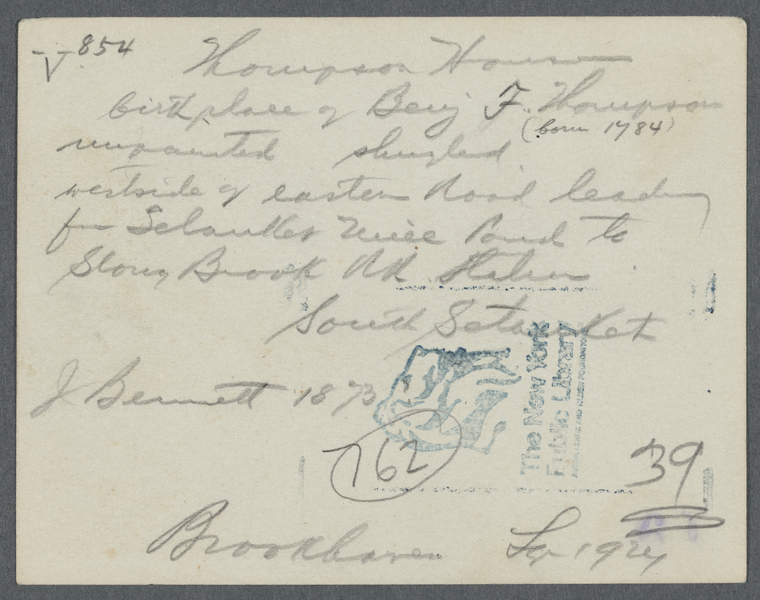 V 854
Thompson House
birthplace of Benj F. Thompson
(born 1784)
unpainted shingled
westside of eastern Road leading
fm Setauket Mill Pond to
Stony Brook RR Station
South Setauket
J Bennett 1873
The New York
Public Library
762
39
Brookhaven 1924